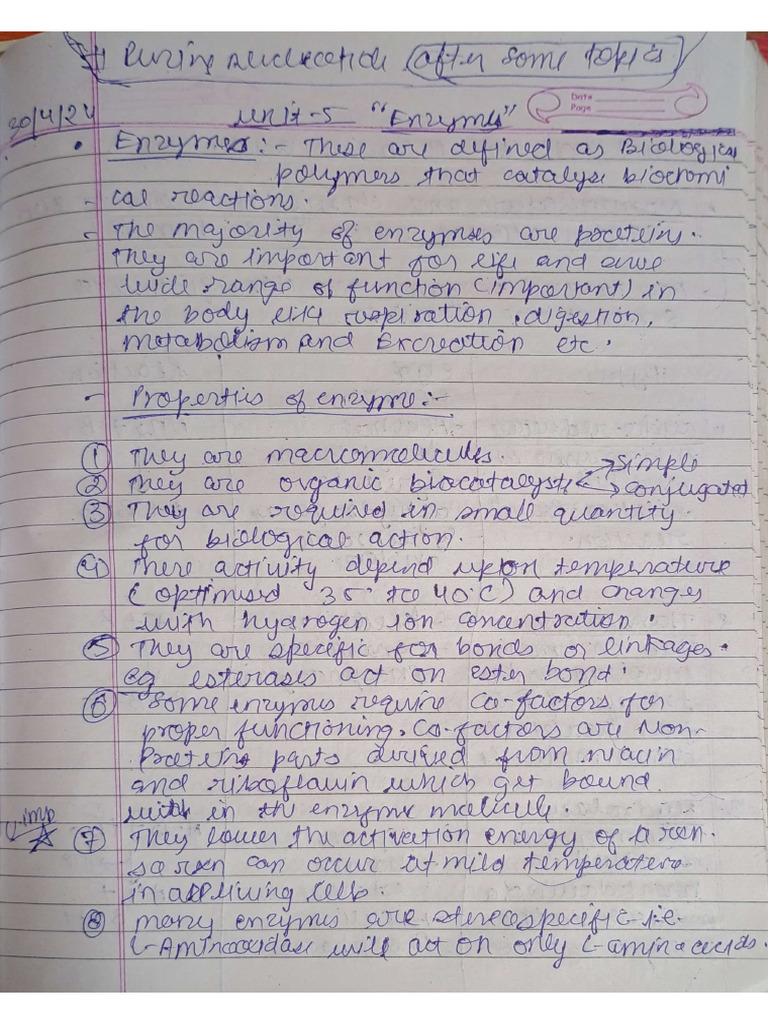 Purine nucleotide after some topics
Date
Page
20/4/24 Unit-5 "Enzymes"
• Enzymes :- These are defined as Biologica
polymers that catalyse biochemi
- cal reactions.
- The majority of enzymes are protein.
They are important for life and
wide range of function (important) in
the body like respiration, digestion,
metabolism and Excreation etc.
- Properties of enzyme :-
① They are macromolecules.
② They are organic biocatalysts → simple → conjugated
③ They are required in small quantity
for biological action.
④ There activity depend upon temperature
(optimised 35° to 40°C) and changes
with hydrogen ion concentration.
⑤ They are specific for bonds or linkages.
eg esterases act on ester bond.
⑥ Some enzymes require Co-factors for
proper functioning. Co-factors are Non-
Protein parts derived from niacin
and riboflavin which get bound
with in the enzyme molecule.
imp ⑦ They lower the activation energy of a rxn.
so rxn can occur at mild temperature
in all living cells.
⑧ many enzymes are stereospecific i.e.
L-Aminooxidase will act on only L-amino acids.